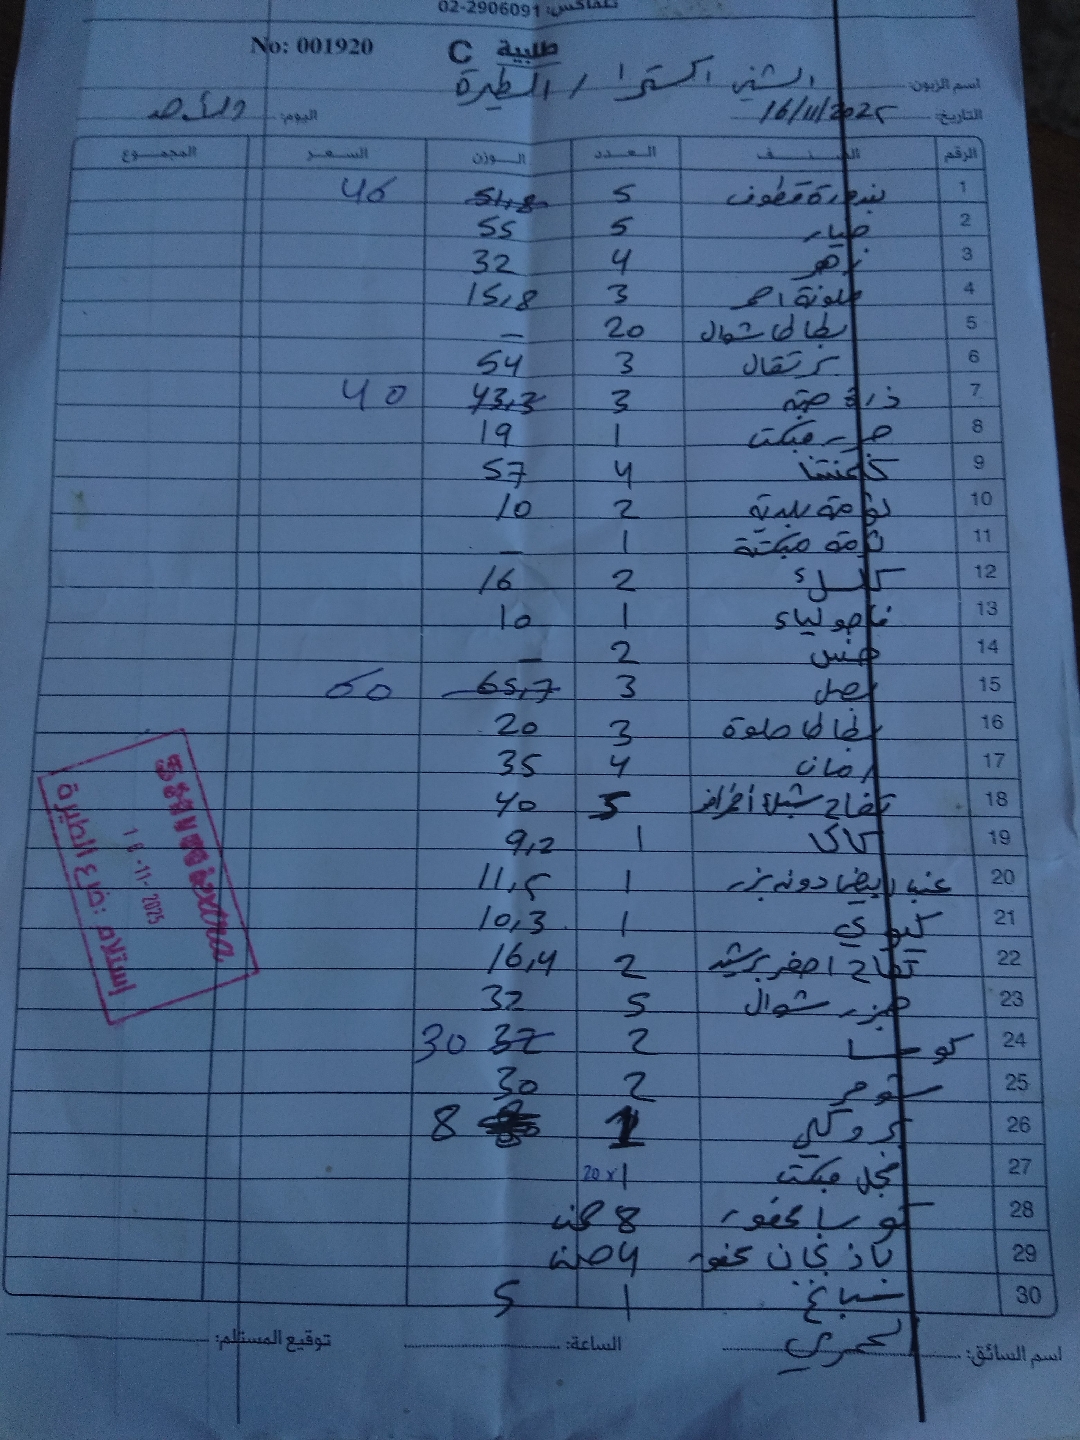 تلفاكس: 02-2906091
No: 001920 طلبية C
اسم الزبون: الشني اكسترا / الطيرة
التاريخ: 16/11/2025 اليوم: الأحد
الرقم الصنف العدد الوزن السعر المجموع
1 بندورة قطوف 5 51,8 46
2 خيار 5 55
3 زهر 4 32
4 ملونة احمر 3 15,8
5 بطاطا شوال 20 –
6 برتقال 3 54
7 ذرة حبة 3 43,3 40
8 جزر مبكت 1 19
9 كلمنتينا 4 57
10 ثومة بلدية 2 10
11 ثومة مبكتة 1 –
12 كلسلري 2 16
13 فاصولياء 1 10
14 خس 2 –
15 بصل 3 65,7 60
16 بطاطا حلوة 3 20
17 رمان 4 35
18 تفاح 5 40
19 كاكا 1 9,2
20 عنب ابيض دون بزر 1 11,5
21 كيوي 1 10,3
22 تفاح اصفر 2 16,4
23 جزر شوال 5 32
24 كوسا 2 37 30
25 بوملي 2 30
26 بروكلي 1 8
27 فجل مبكت 1 20x
28 كوسا محفور 8 صحن
29 باذنجان محفور 4 صحن
30 سبانخ 1 5
اسم السائق: العمري الساعة: توقيع المستلم:
extra
16-11-2025
إستلام: فرع الطيرة